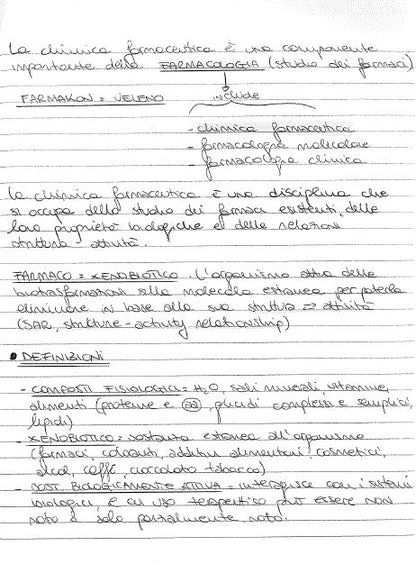 La chimica farmaceutica è una componente
importante della FARMACOLOGIA (studio dei farmaci)
FARMAKON = VELENO
INCLUDE
- chimica farmaceutica
- farmacologia molecolare
- farmacologia clinica
La chimica farmaceutica è una disciplina che
si occupa dello studio dei farmaci esistenti, delle
loro proprietà biologiche e delle relazioni
struttura attività.
FARMACO = XENOBIOTICO. L'organismo attua delle
biotrasformazioni alla molecola estranea per poterla
eliminare in base alla sua struttura attività
(SAR, structure-activity relationship)
• DEFINIZIONI
- COMPOSTI FISIOLOGICI = H₂O, sali minerali, vitamine,
alimenti (proteine e aa, glucidi complessi e semplici,
lipidi)
- XENOBIOTICO = sostanza estranea all'organismo
(farmaci, coloranti, additivi alimentari, cosmetici,
alcol, caffè, cioccolato tabacco)
- SOST. BIOLOGICAMENTE ATTIVA = interagisce con i sistemi
biologici, e cui uso terapeutico può essere non
noto o solo parzialmente noto.